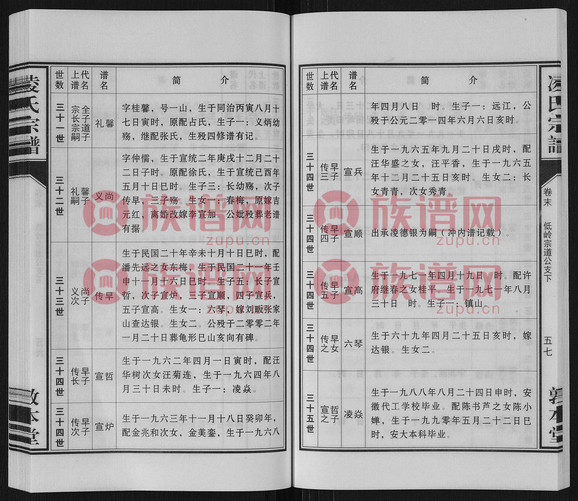 凌氏宗谱
敦本堂
世数
上谱 代名
谱名
简介
三十一世
宗长宗嗣 全子道子
礼馨
字桂馨，号一山，生于同治丙寅八月十
七日寅时，原配占氏，生子一：义炳幼
殇，继配张氏，生殁四修谱有记。
三十二世
礼嗣 馨子
义尚
字仲儒，生于宣统二年庚戌十二月二
十二日子时。原配徐氏，生于宣统己酉年
五月十日巳时。生子三：长幼殇，次子
传早，三子殇。生女一：春梅，原嫁吉
元红，离婚改嫁李宣加。公妣殁葬老谱
有据
三十三世
义次 尚子
传早
生于民国二十年辛未十月十日巳时，配
潘先述之女东梅，生于民国二十一年壬
申十一月十六日巳时。生子五：长子宣
哲，次子宣炉，三子宣顺，四子宣兵，
五子宣高。生女一：六琴，嫁刘贩张家
山查达银。生女二。公殁于二零零二年
一月二十日葬龟形巳山亥向有碑。
三十四世
传长 早子
宣哲
生于一九六二年四月一日寅时，配汪
华树次女汪菊连，生于一九六四年八
月三十日未时。生子一：凌焱。
三十四世
传次 早子
宣炉
生于一九六三年十一月十八日癸卯年，
配金兆和次女，金美銮，生于一九六八
世数
上谱 代名
谱名
简介
年四月八日 时。生子一：远江，公
殁于公元二零一四年六月六日亥时。
三十四世
传三 早子
宣兵
生于一九六五年九月二十日戌时，配
汪华盛之女，汪平香，生于一九六五
年十二月二十五日亥时。生女二：长
女青青，次女秀青。
三十四世
传四 早子
宣顺
出承凌德银为嗣（冲内谱记载）
三十四世
传五 早子
宣高
生于一九七一年四月十九日 时，配许
府继春之女桂平，生于一九七一年八月
三十日 时。生子一：镇山。
三十四世
传之 早女
六琴
生于六十九年四月二十五日亥时，嫁
达银。生女二。
三十五世
宣之 哲子
凌焱
生于一九八八年八月二十四日申时，安
徽代工学校毕业。配陈书芦之女陈小
婵，生于一九九零年五月二十二日巳
时，安大本科毕业。
凌氏宗谱
卷末
低岭宗道公支下
五七
敦本堂
族谱网
zupu.cn
族谱网
zupu.cn